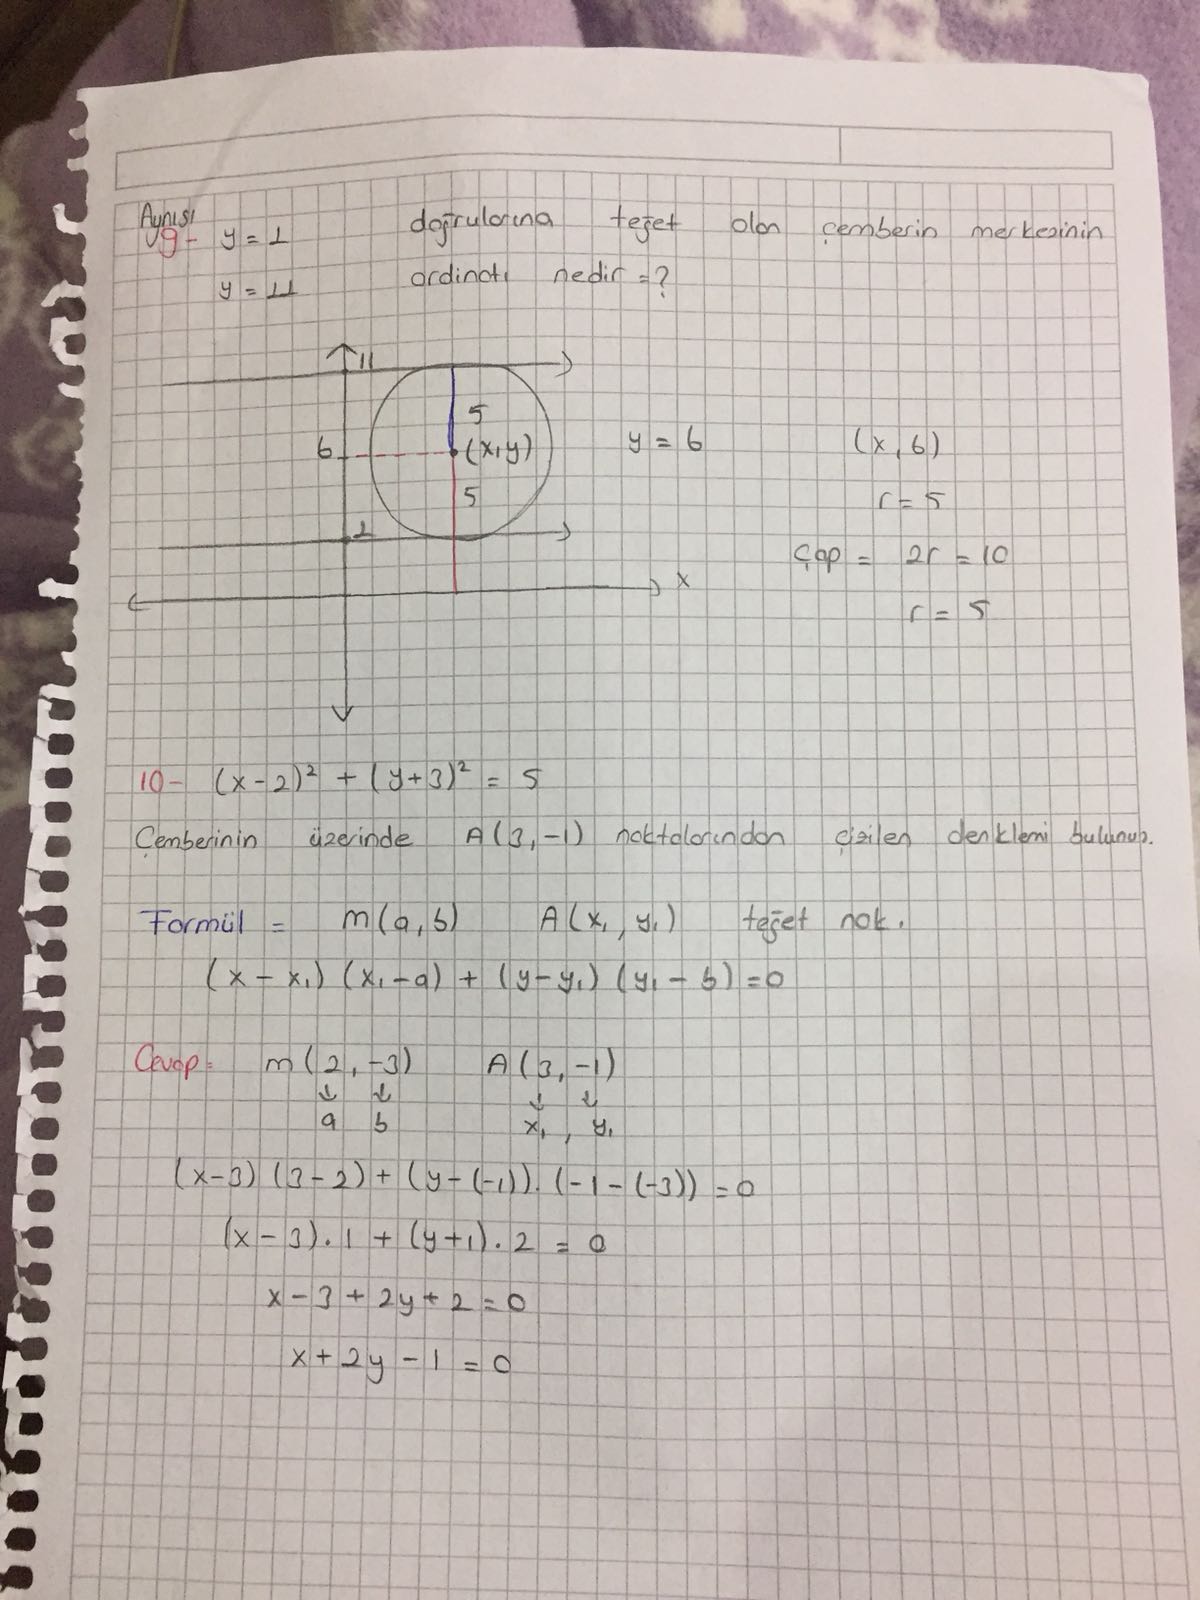 Aynısı
9- y = 1 doğrularına teğet olan çemberin merkezinin
y = 11 ordinatı nedir = ?
11
5
6 (x,y) y = 6 (x, 6)
5 r = 5
1
Çap = 2r = 10
x
r = 5
10- (x-2)² + (y+3)² = 5
Çemberinin üzerinde A(3,-1) noktalarından çizilen denklemi bulunuz.
Formül = m(a,b) A(x₁, y₁) teğet nok.
(x - x₁) (x₁-a) + (y-y₁) (y₁ - b) = 0
Cevap= m(2,-3) A(3,-1)
↓ ↓ ↓ ↓
a b x₁, y₁
(x-3) (3-2) + (y-(-1)). (-1-(-3)) = 0
(x-3).1 + (y+1).2 = 0
x - 3 + 2y + 2 = 0
x + 2y - 1 = 0